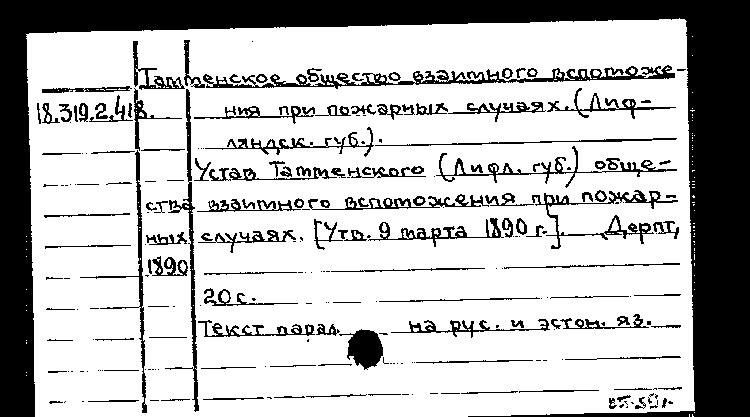 Тамменское общество взаимного вспоможе-
18.319.2.418. ния при пожарных случаях. (Лиф-
ляндск. губ.).
Устав Тамменского (Лифл. губ.) обще-
ства взаимного вспоможения при пожар-
ных случаях. [Утв. 9 марта 1890 г.]. Дерпт,
1890
20 с.
Текст парал. на рус. и эстон. яз.